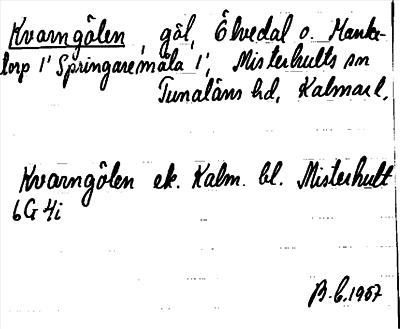 Kvarngölen, göl, Älvedal o. Manke-
torp 1' Springaremåla 1', Misterhults sn
Tunaläns hd, Kalmar l.
Kvarngölen ek. Kalm. bl. Misterhult
6G 4i
1967